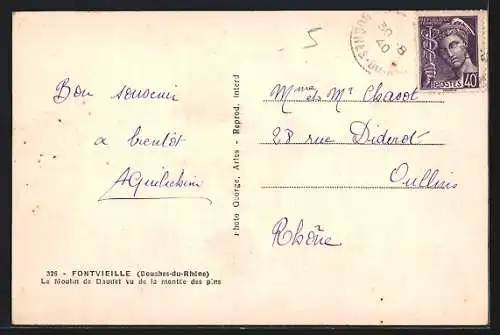 Bon souvenir
a bientôt
326 - FONTVIEILLE (Bouches-du-Rhône)
Le Moulin de Daudet vu de la montée des pins
Photo George, Arles - Reprod. interd
5
30-8
40
REPUBLIQUE FRANÇAISE
POSTES 40
Mme et Mr Chacot
28 rue Diderot
Oullins
Rhône